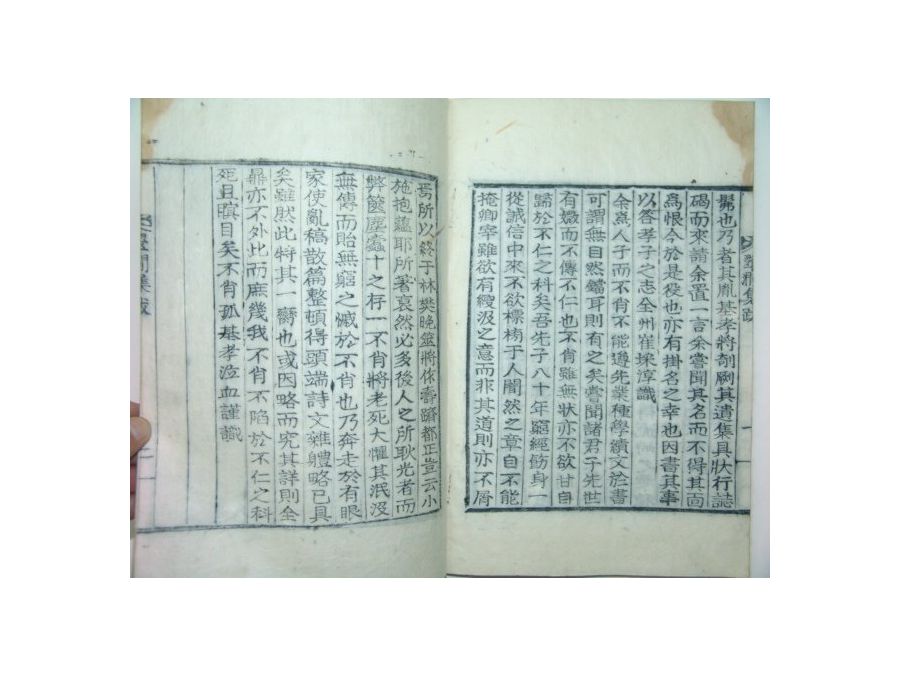 鬍也乃者其胤基孝將剞劂其遺集具狀行誌
碣而來請余置一言余嘗聞其名而不得其面
爲恨今於是役也亦有掛名之幸也因書其事
以答孝子之志全州崔埰淳識
余爲人子而不肖不能遵先業種學績文於書
可謂無目然鐫耳則有之矣嘗聞諸君子先世
有媺而不傳不仁也不肖雖無狀亦不欲甘自
歸於不仁之科矣吾先子八十年窮經飭身一
從誠信中來不欲標榜于人闇然之章自不能
掩卿宰雖欲有綆汲之意而非其道則亦不屑
焉所以終于林樊晚簉將仕壽躋都正豈云小
施抱蘊耶所著裒然必多後人之所耿光者而
弊篋塵蠹十之存一不肖將老死大懼其泯沒
無傳而貽無窮之慽於不肖也乃奔走於有眼
家使亂稿散篇整頓得頭端詩文雜軆略已具
矣雖然此特其一臠也或因略而究其詳則全
鼎亦不外此而庶幾我不肖不陷於不仁之科
死且瞑目矣不肖孤基孝泣血謹識